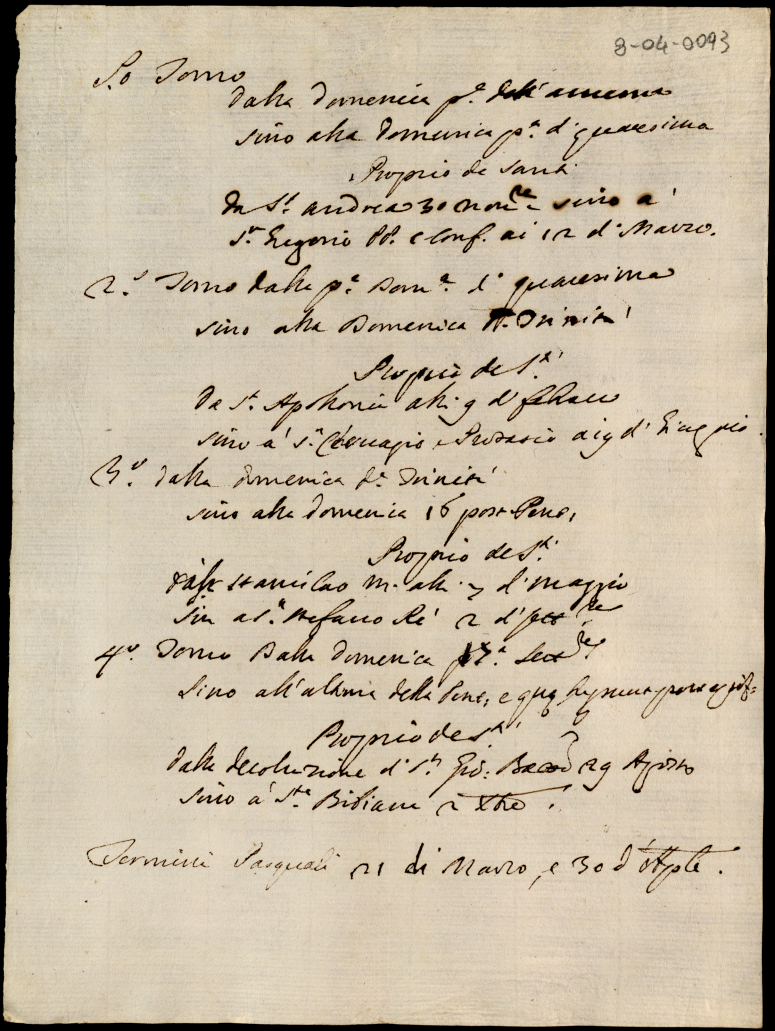 8-04-0093
P.o Tomo
dalla Domenica p.a dell'avvento
sino alla Domenica p.a di quaresima
Proprio de Santi
da St. Andrea 30 sino a'
St. Gregorio PP. e Conf. ai 12 di Marzo.
2.o Tomo dalla p.a Dom.a di quaresima
sino alla Domenica Trinità
Proprio de S.ti
da St. Apollonia alli 9 di
sino a' S.n e Protasio ai 19 di
3.o dalla domenica d.a Trinità
sino alla domenica 16 post Pent.
Proprio de S.ti
Stanislao M. alli 7 di Maggio
sin a S.n Stefano Re' 2 di
4.o Tomo Dalla Domenica
sino all'ultima della Pent. e
Proprio de S.ti
dalla decolazione di S.n Gio: 29 Agosto
sino a' S.ta Bibiana 2 Xbre.
Termini Pasquali 21 di Marzo, e 30 d'Aple.